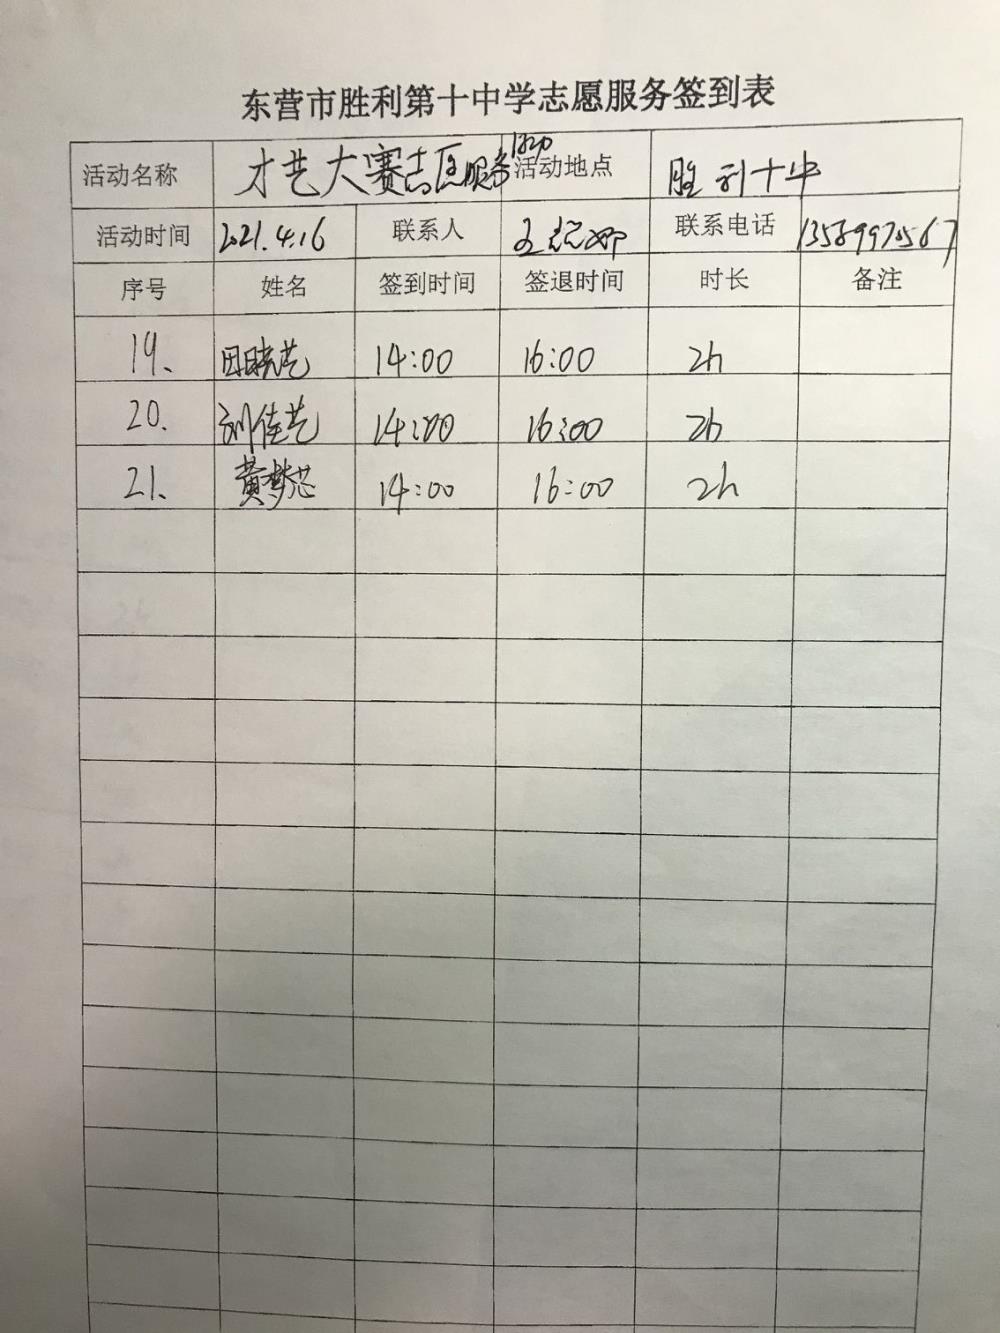 东营市胜利第十中学志愿服务签到表
活动名称 才艺大赛志愿服务活动 活动地点 胜利十中
活动时间 2021.4.16 联系人 联系电话 13589970567
序号 姓名 签到时间 签退时间 时长 备注
19. 田晓艺 14:00 16:00 2h
20. 刘佳艺 14:00 16:00 2h
21. 黄梦芯 14:00 16:00 2h